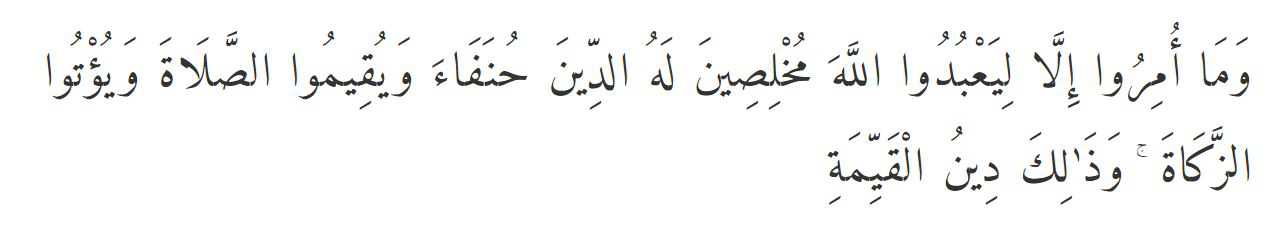 وَمَا أُمِرُوا إِلَّا لِيَعْبُدُوا اللَّهَ مُخْلِصِينَ لَهُ الدِّينَ حُنَفَاءَ وَيُقِيمُوا الصَّلَاةَ وَيُؤْتُوا
الزَّكَاةَ ۚ وَذَٰلِكَ دِينُ الْقَيِّمَةِ